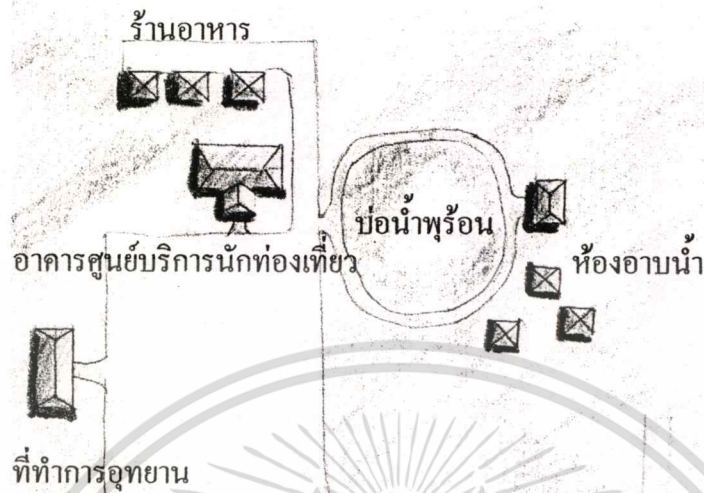 ร้านอาหาร
บ่อน้ำพุร้อน
อาคารศูนย์บริการนักท่องเที่ยว
ห้องอาบน้ำ
ที่ทำการอุทยาน